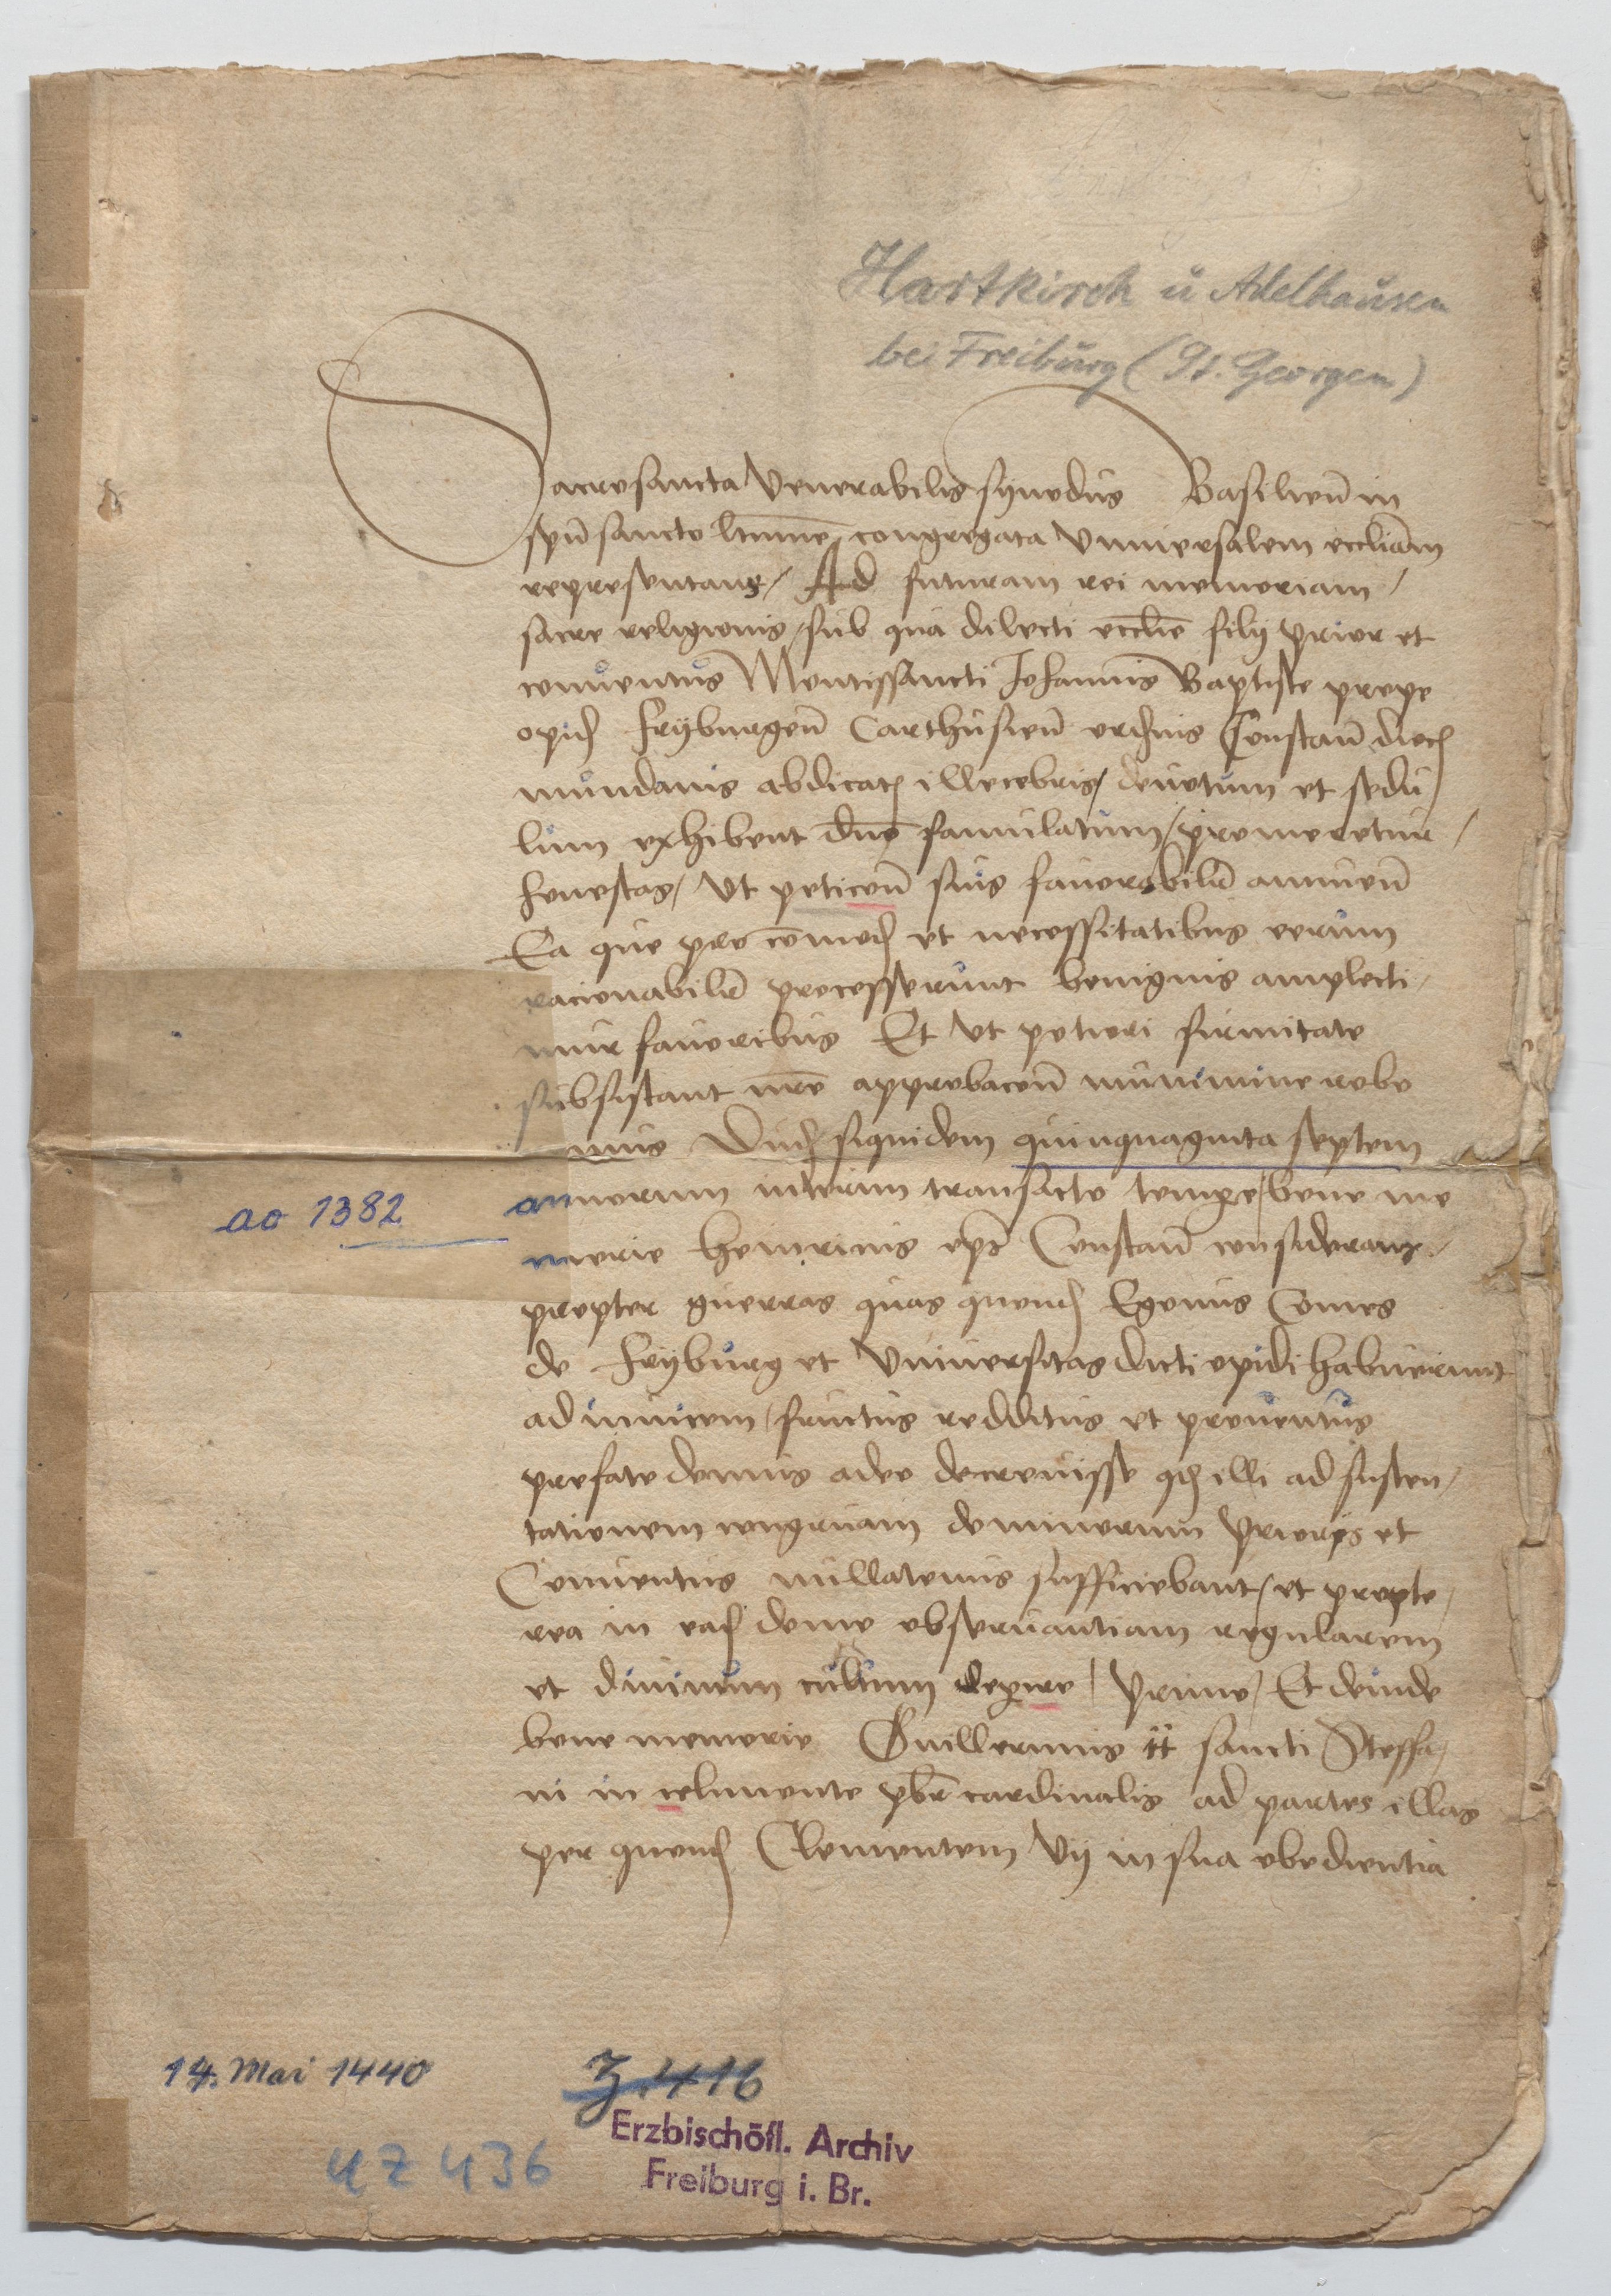 Hartkirch u Adelhausen
bei Freiburg (St. Georgen)
Sacrosancta Venerabilis synodus Basilien̄ in
spū sancto ltimme congregata Vniuersalem eccliam̄
representans / Ad futuram rei memoriam /
sacre religionis / sub qua dilecti ecclie filij prior et
conuentus Montissancti Johannis Baptiste prope
opid Fryburgen̄ Carthusien̄ ordinis Constan̄ dioc
mundanis abdicat illecebris / deuotum et sedu /
lum exhibent dno famulatum / promeretur /
honestas / Vt peticon̄ suis fauorabilit annuen̄
Ea que pro com̄od et necessitatibus eorum
racionabilit processerunt benignis amplecti /
mur fauoribus Et Vt pociori firmitate
subsistant nr̄e approbacon̄ munimine robo
mus Dud siquidem quinquaginta septem
annorum interim transacto tempe / bone me
ao 1382
morie heinricus epūs Constan̄ considerans /
propter guerras quas quond Egonus Comes
de Fryburg et Vniuersitas dicti opidi habuerunt
ad inuicem / fructus redditus et prouentus
prefate domus adeo decreuisse qd illi ad susten /
tationem congruam dominorum prioris et
Conuentus nullatenus sufficiebant / et propte /
rea in ead domo obseruantiam regularem
et diuinum cultum deperire / Primo / Et deinde
bone memorie Guillermus tt sancti Steffa /
ni in celimonte pbr̄ cardinalis ad partes illas
per quond Clementem Vij in sua obedientia
14. Mai 1440
Z. 416
Erzbischöfl. Archiv
Freiburg i. Br.
UZ 436